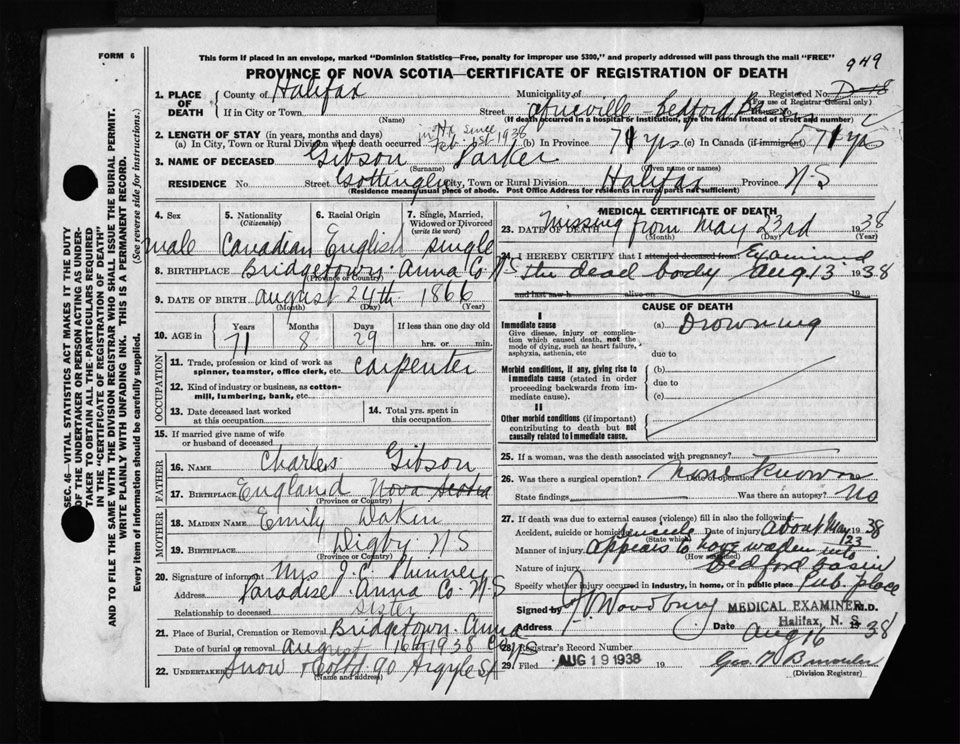 FORM 6
This form if placed in an envelope, marked "Dominion Statistics—Free, penalty for improper use $300," and properly addressed will pass through the mail "FREE"
949
PROVINCE OF NOVA SCOTIA—CERTIFICATE OF REGISTRATION OF DEATH
SEC. 46—VITAL STATISTICS ACT MAKES IT THE DUTY
OF THE UNDERTAKER OR PERSON ACTING AS UNDER-
TAKER TO OBTAIN ALL THE PARTICULARS REQUIRED
IN THE "CERTIFICATE OF REGISTRATION OF DEATH"
AND TO FILE THE SAME WITH THE DIVISION REGISTRAR WHO SHALL ISSUE THE BURIAL PERMIT.
WRITE PLAINLY WITH UNFADING INK. THIS IS A PERMANENT RECORD.
Every item of information should be carefully supplied. (See reverse side for instructions.)
1. PLACE OF DEATH County of Halifax Municipality of Registered No.
(For use of Registrar General only)
If in City or Town Street Bedford
(Name) (If death occurred in a hospital or institution, give the name instead of street and number)
2. LENGTH OF STAY (in years, months and days) in Hx since Feb. 1st 1938
(a) In City, Town or Rural Division where death occurred (b) In Province 71 yrs (c) In Canada (if immigrant) 71 yrs
3. NAME OF DECEASED Gibson Parker
(Surname) (Given name or names)
RESIDENCE No. Street Gottingen City, Town or Rural Division Halifax Province N S
(Residence means usual place of abode. Post Office Address for residents in rural parts not sufficient)
4. Sex 5. Nationality (Citizenship) 6. Racial Origin 7. Single, Married, Widowed or Divorced (write the word)
male Canadian English single
8. BIRTHPLACE Bridgetown Anna Co N S
(Province or Country)
9. DATE OF BIRTH August 24th 1866
(Month) (Day) (Year)
10. AGE in Years Months Days If less than one day old
71 8 29 hrs. or min.
OCCUPATION
11. Trade, profession or kind of work as spinner, teamster, office clerk, etc. Carpenter
12. Kind of industry or business, as cotton-mill, lumbering, bank, etc.
13. Date deceased last worked at this occupation
14. Total yrs. spent in this occupation
15. If married give name of wife or husband of deceased
FATHER
16. NAME Charles Gibson
17. BIRTHPLACE England Nova Scotia
(Province or Country)
MOTHER
18. MAIDEN NAME Emily Dakin
19. BIRTHPLACE Digby N S
(Province or Country)
20. Signature of informant Mrs J. E. Phinney
Address Paradise Anna Co. N. S
Relationship to deceased Sister
21. Place of Burial, Cremation or Removal Bridgetown Anna Co N S
Date of burial or removal August 16th 1938
22. UNDERTAKER Snow & Co Ltd 90 Argyle St
(Name and address)
MEDICAL CERTIFICATE OF DEATH
23. DATE OF DEATH Missing from May 23rd 1938
(Month) (Day) (Year)
24. I HEREBY CERTIFY that I attended deceased from: Examined
the dead body Aug 13 1938
and last saw h alive on 19
CAUSE OF DEATH
I
Immediate cause
Give disease, injury or complication which caused death, not the mode of dying, such as heart failure, asphyxia, asthenia, etc
(a) Drowning
due to
Morbid conditions, if any, giving rise to immediate cause (stated in order proceeding backwards from immediate cause).
(b)
due to
(c)
II
Other morbid conditions (if important) contributing to death but not causally related to I immediate cause.
25. If a woman, was the death associated with pregnancy?
26. Was there a surgical operation? Date of operation none known
State findings Was there an autopsy? No
27. If death was due to external causes (violence) fill in also the following:
Accident, suicide or homicide? Suicide Date of injury about May 23 1938
(State which)
Manner of injury appears to have waden into
(How sustained)
Nature of injury Bedford basin
Specify whether injury occurred in industry, in home, or in public place Pub. place
Signed by Woodbury MEDICAL EXAMINER M.D.
Halifax, N. S.
Address Date Aug 16 1938
28. Registrar's Record Number
29. Filed AUG 19 1938 19
(Division Registrar)